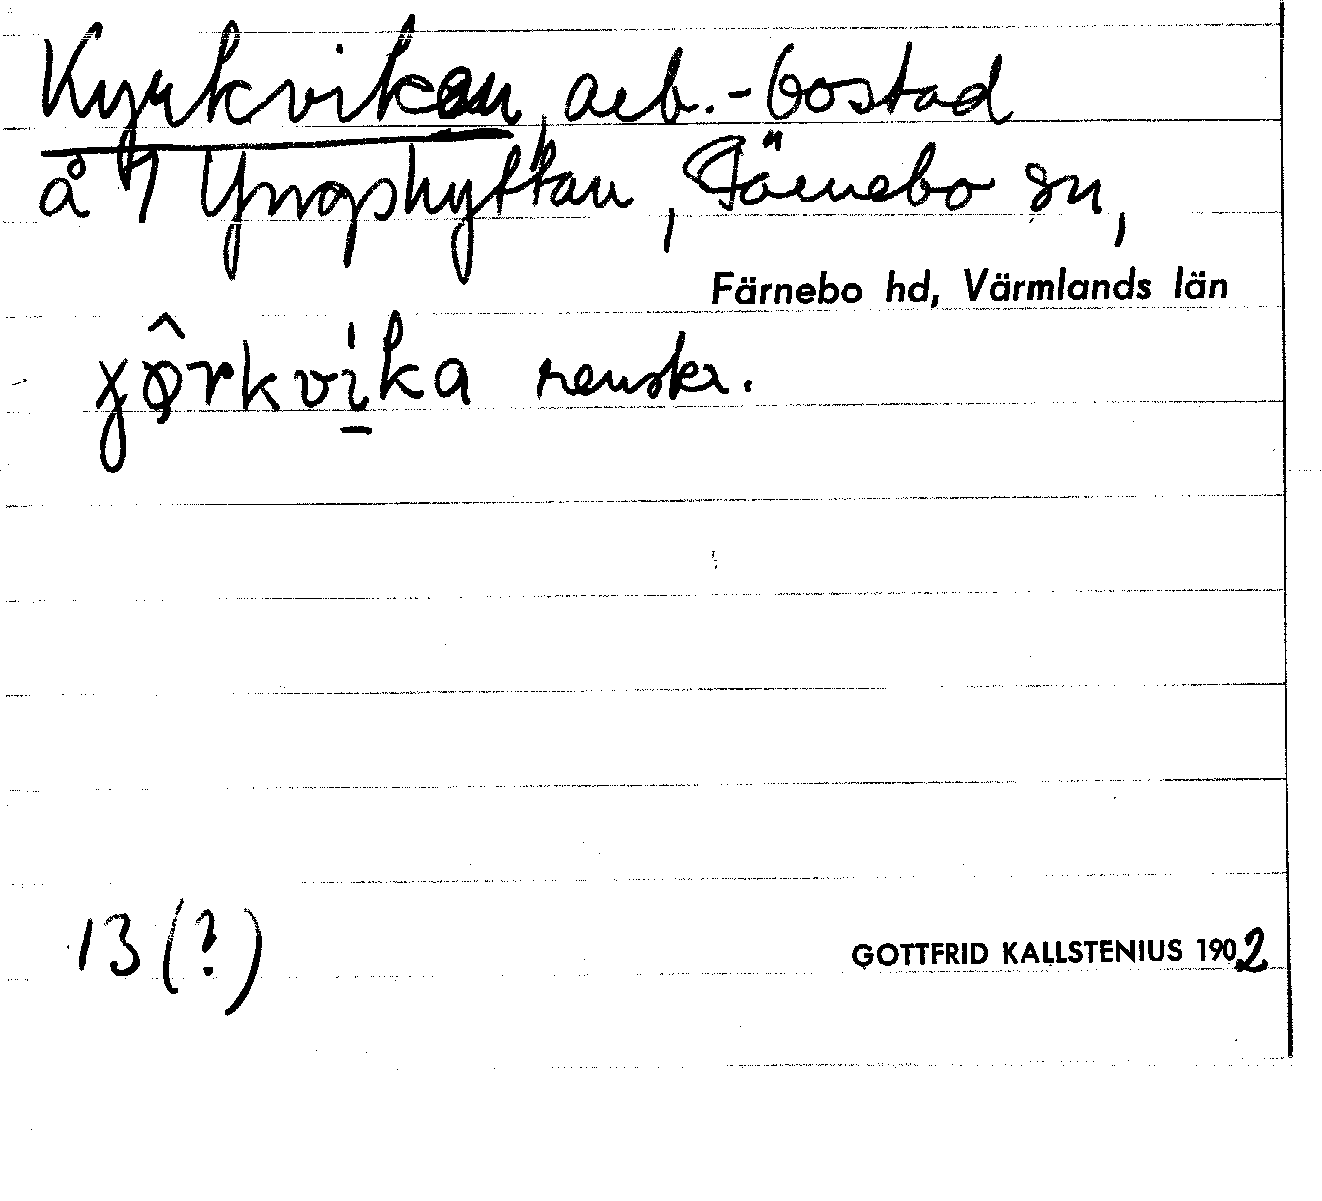 Kyrkviken, arb.-bostad
å 7 Yngshyttan, Färnebo sn,
Färnebo hd, Värmlands län
rkvika renskr.
13 (?)
GOTTFRID KALLSTENIUS 1902